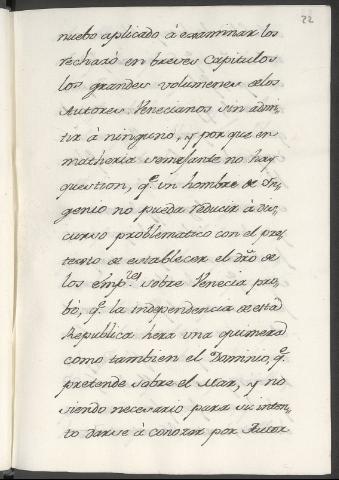 22
nuebo aplicado á examinar los
rechazó en breves Capitulos
los grandes volumenes de los
Autores Venecianos sin admi-
tir á ninguno, y por que en
matheria semejante no hay
question, q.e un hombre de In-
genio no pueda reducir á dis-
curso problematico con el pre-
texto de establecer el dro de
los Emp.res sobre Venecia pro-
bó, q.e la independencia de esta
Republica hera una quimera
como tambien el Domnio, q.e
pretende sobre el Mar, y no
siendo necesario para su inten-
to darse á conozar por Autor